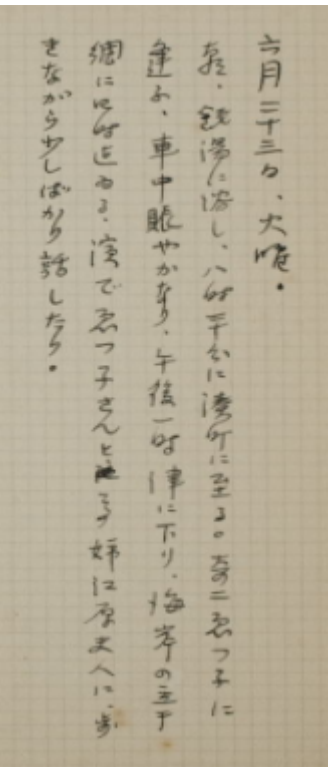 六月二十三日、火曜。
朝、銭湯に浴し、八時半分に湊町に至る。赤二ゑつ子に
逢ふ、車中賑やかなり、午後一時津に下り、海岸の立干
網に四時迄ゐる、濱でゑつ子さんとその姉江原夫人に、歩
きながら少しばかり話したり。